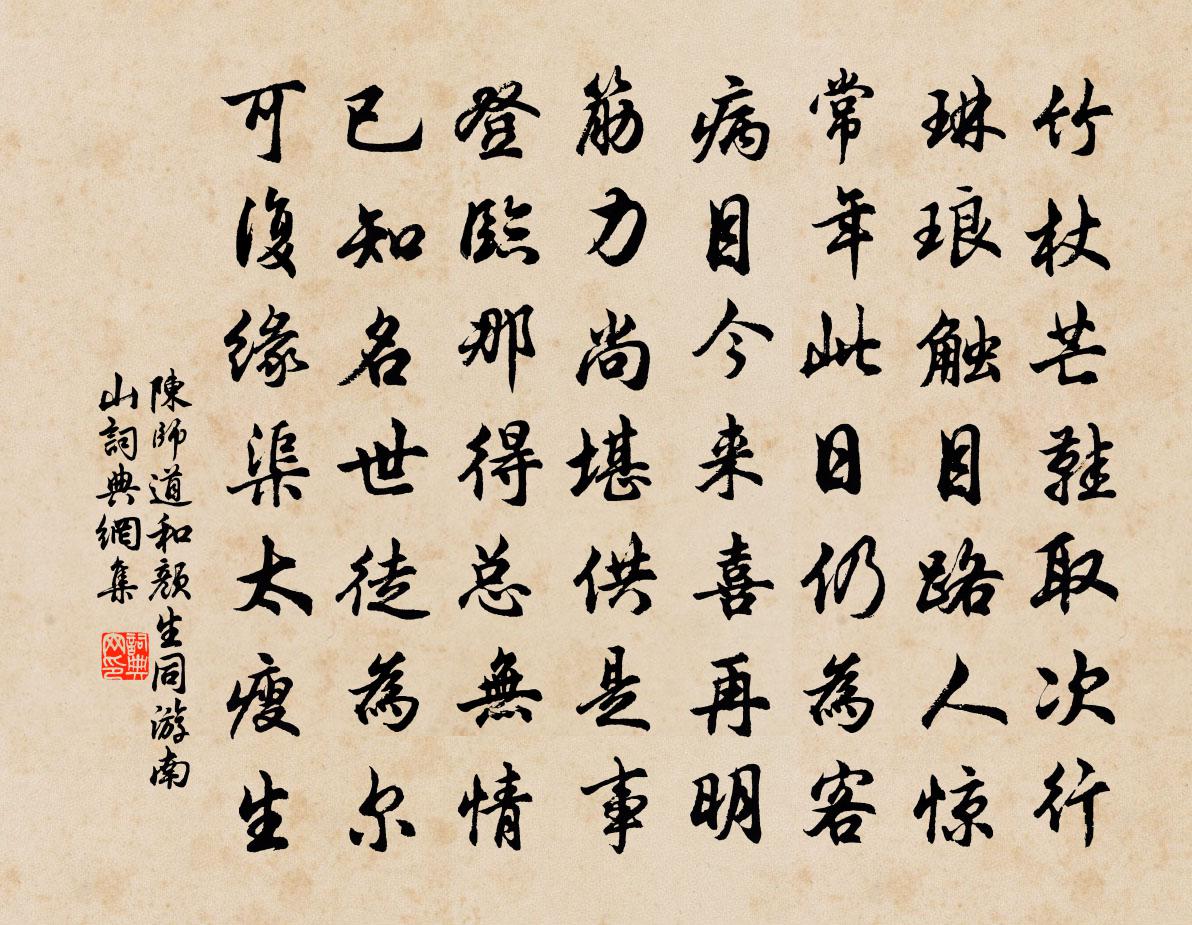 竹杖芒鞋取次行
琳琅触目路人惊
常年此日仍為客
病目今来喜再明
筋力尚堪供是事
登臨那得总無情
已知名世徒為尔
可復缘渠太瘦生
陳師道和顏生同游南
山詞典網集
詞典
网印